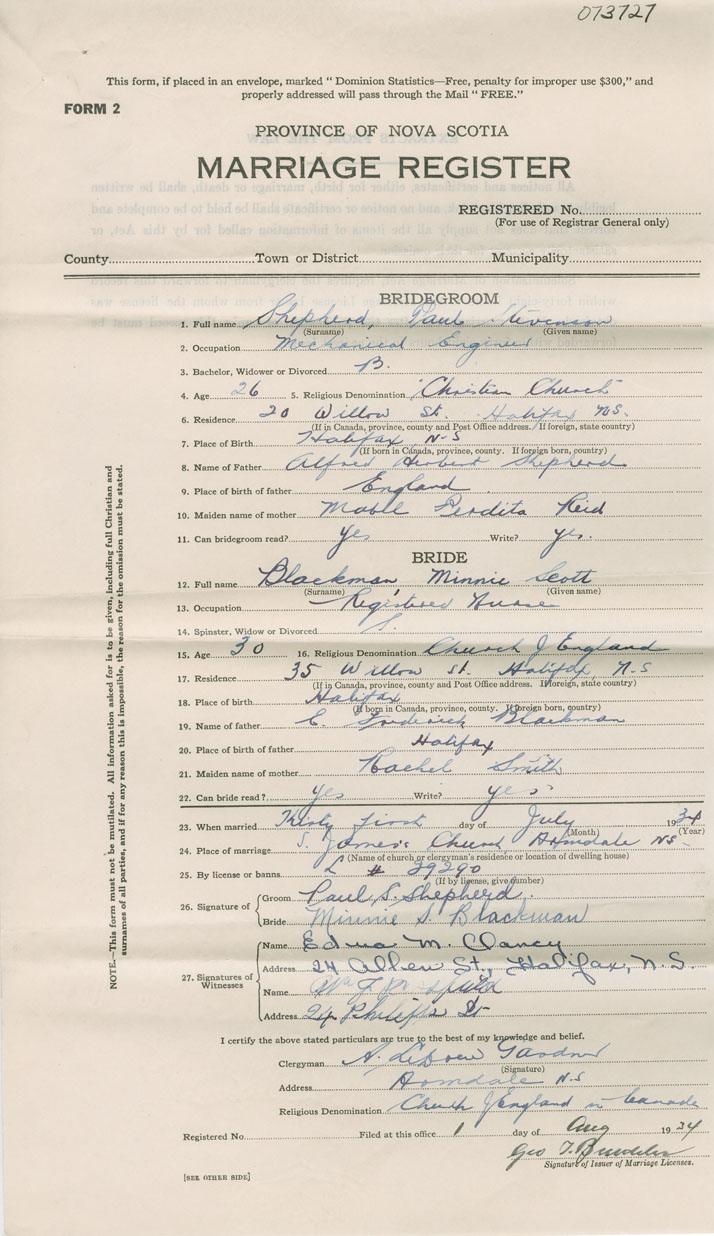 073727
This form, if placed in an envelope, marked "Dominion Statistics—Free, penalty for improper use $300," and
properly addressed will pass through the Mail "FREE."
FORM 2
PROVINCE OF NOVA SCOTIA
MARRIAGE REGISTER
REGISTERED No.
(For use of Registrar General only)
County Town or District Municipality
BRIDEGROOM
1. Full name Shepherd, Paul Stevenson
(Surname) (Given name)
2. Occupation Mechanical Engineer
3. Bachelor, Widower or Divorced B.
4. Age 26 5. Religious Denomination "Christian Church"
6. Residence 20 Willow St. Halifax N.S.
(If in Canada, province, county and Post Office address. If foreign, state country)
7. Place of Birth Halifax N-S
(If born in Canada, province, county. If foreign born, country)
8. Name of Father Alfred Herbert Shepherd
9. Place of birth of father England
10. Maiden name of mother Mable Perdita Reid
11. Can bridegroom read? Yes Write? yes.
BRIDE
12. Full name Blackman, Minnie Scott
(Surname) (Given name)
13. Occupation Registered Nurse
14. Spinster, Widow or Divorced S.
15. Age 30 16. Religious Denomination Church of England
17. Residence 35 Willow St. Halifax, N.S
(If in Canada, province, county and Post Office address. If foreign, state country)
18. Place of birth Halifax
(If born in Canada, province, county. If foreign born, country)
19. Name of father C. Frederick Blackman
20. Place of birth of father Halifax
21. Maiden name of mother Rachel Smith
22. Can bride read? yes Write? yes
23. When married Thirty first day of July 1934
(Month) (Year)
24. Place of marriage S. James's Church Armdale NS-
(Name of church or clergyman's residence or location of dwelling house)
25. By license or banns L # 29290
(If by license, give number)
26. Signature of
Groom Paul S. Shepherd.
Bride Minnie S. Blackman
27. Signatures of Witnesses
Name Edna M. Clancy
Address 24 Allen St., Halifax, N.S.
Name Wm
Address 24 Phillips St
I certify the above stated particulars are true to the best of my knowledge and belief.
Clergyman A. LeDrew Gardner
(Signature)
Address Armdale N.S
Religious Denomination Church of England in Canada
Registered No. Filed at this office 1 day of Aug 1934
Geo T.
Signature of Issuer of Marriage Licenses.
[SEE OTHER SIDE]
NOTE.—This form must not be mutilated. All information asked for is to be given, including full Christian and
surnames of all parties, and if for any reason this is impossible, the reason for the omission must be stated.